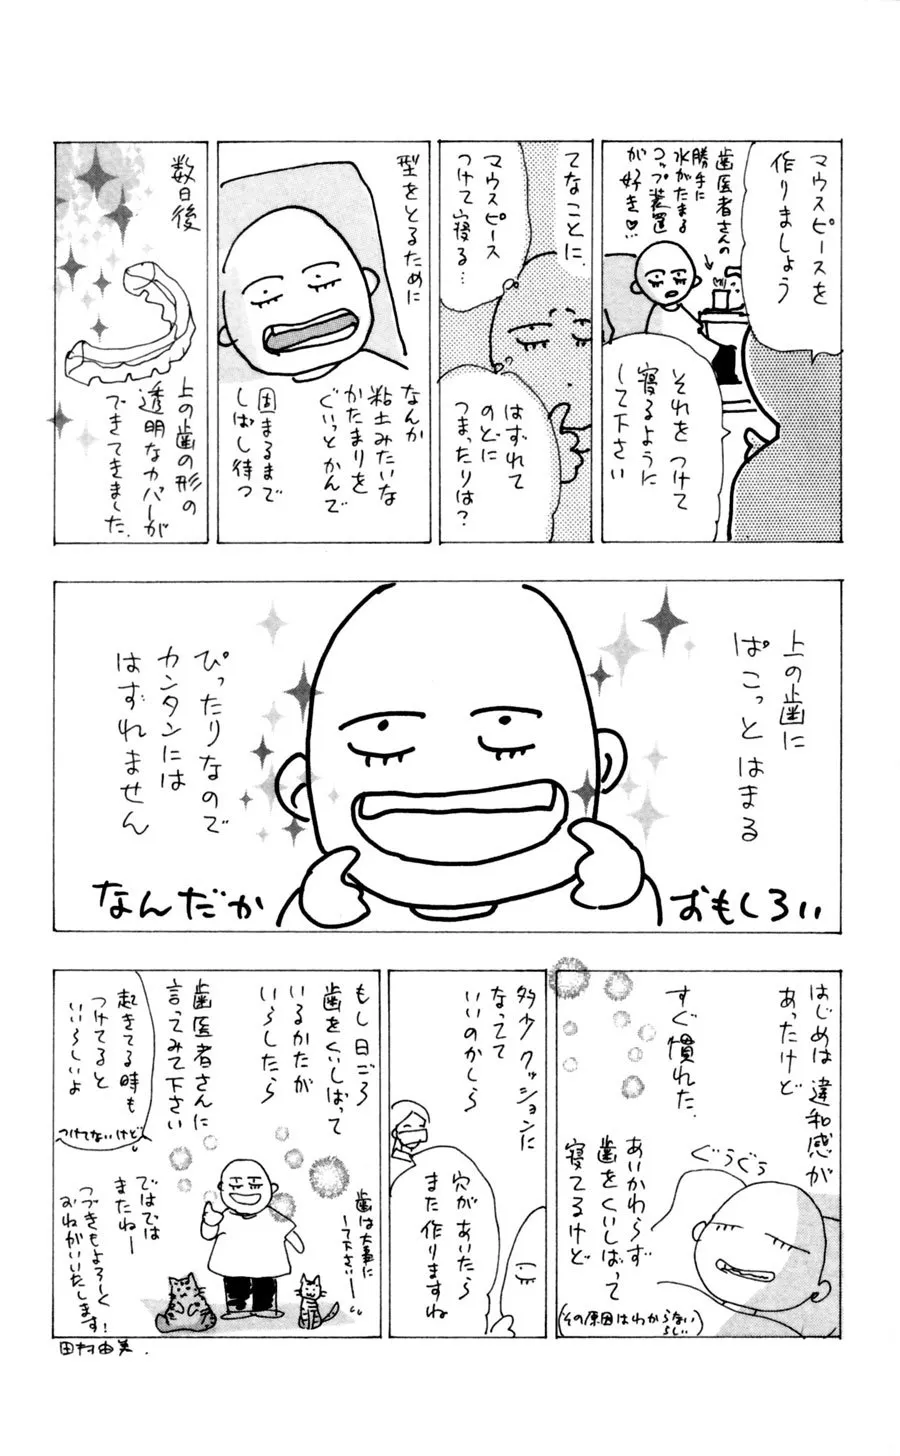 マウスピースを
作りましょう
歯医者さんの
勝手に
水がたまる
コップ装置
が好き♡
それをつけて
寝るように
して下さい
てなことに、
マウスピース
つけて寝る…
はずれて
のどに
つまったりは？
型をとるために
なんか
粘土みたいな
かたまりを
ぐいっとかんで
固まるまで
しばし待つ
数日後
上の歯の形の
透明なカバーが
できてきました。
上の歯に
ぱこっとはまる
ぴったりなので
カンタンには
はずれません
なんだか
おもしろい
はじめは違和感が
あったけど
すぐ慣れた。
ぐうぐう
あいかわらず
歯をくいしばって
寝てるけど
(その原因はわからない
らしい)
多少クッションに
なってて
いいのかしら
穴があいたら
また作りますね
もし日ごろ
歯をくいしばって
いるかたが
いらしたら
歯医者さんに
言ってみて下さい
起きてる時も
つけてると
いいらしいよ
つけてないけど。
歯は大事に
して下さいー
ではでは
またねー
つづきもよろーく
おねがいいたします！
田村由美.